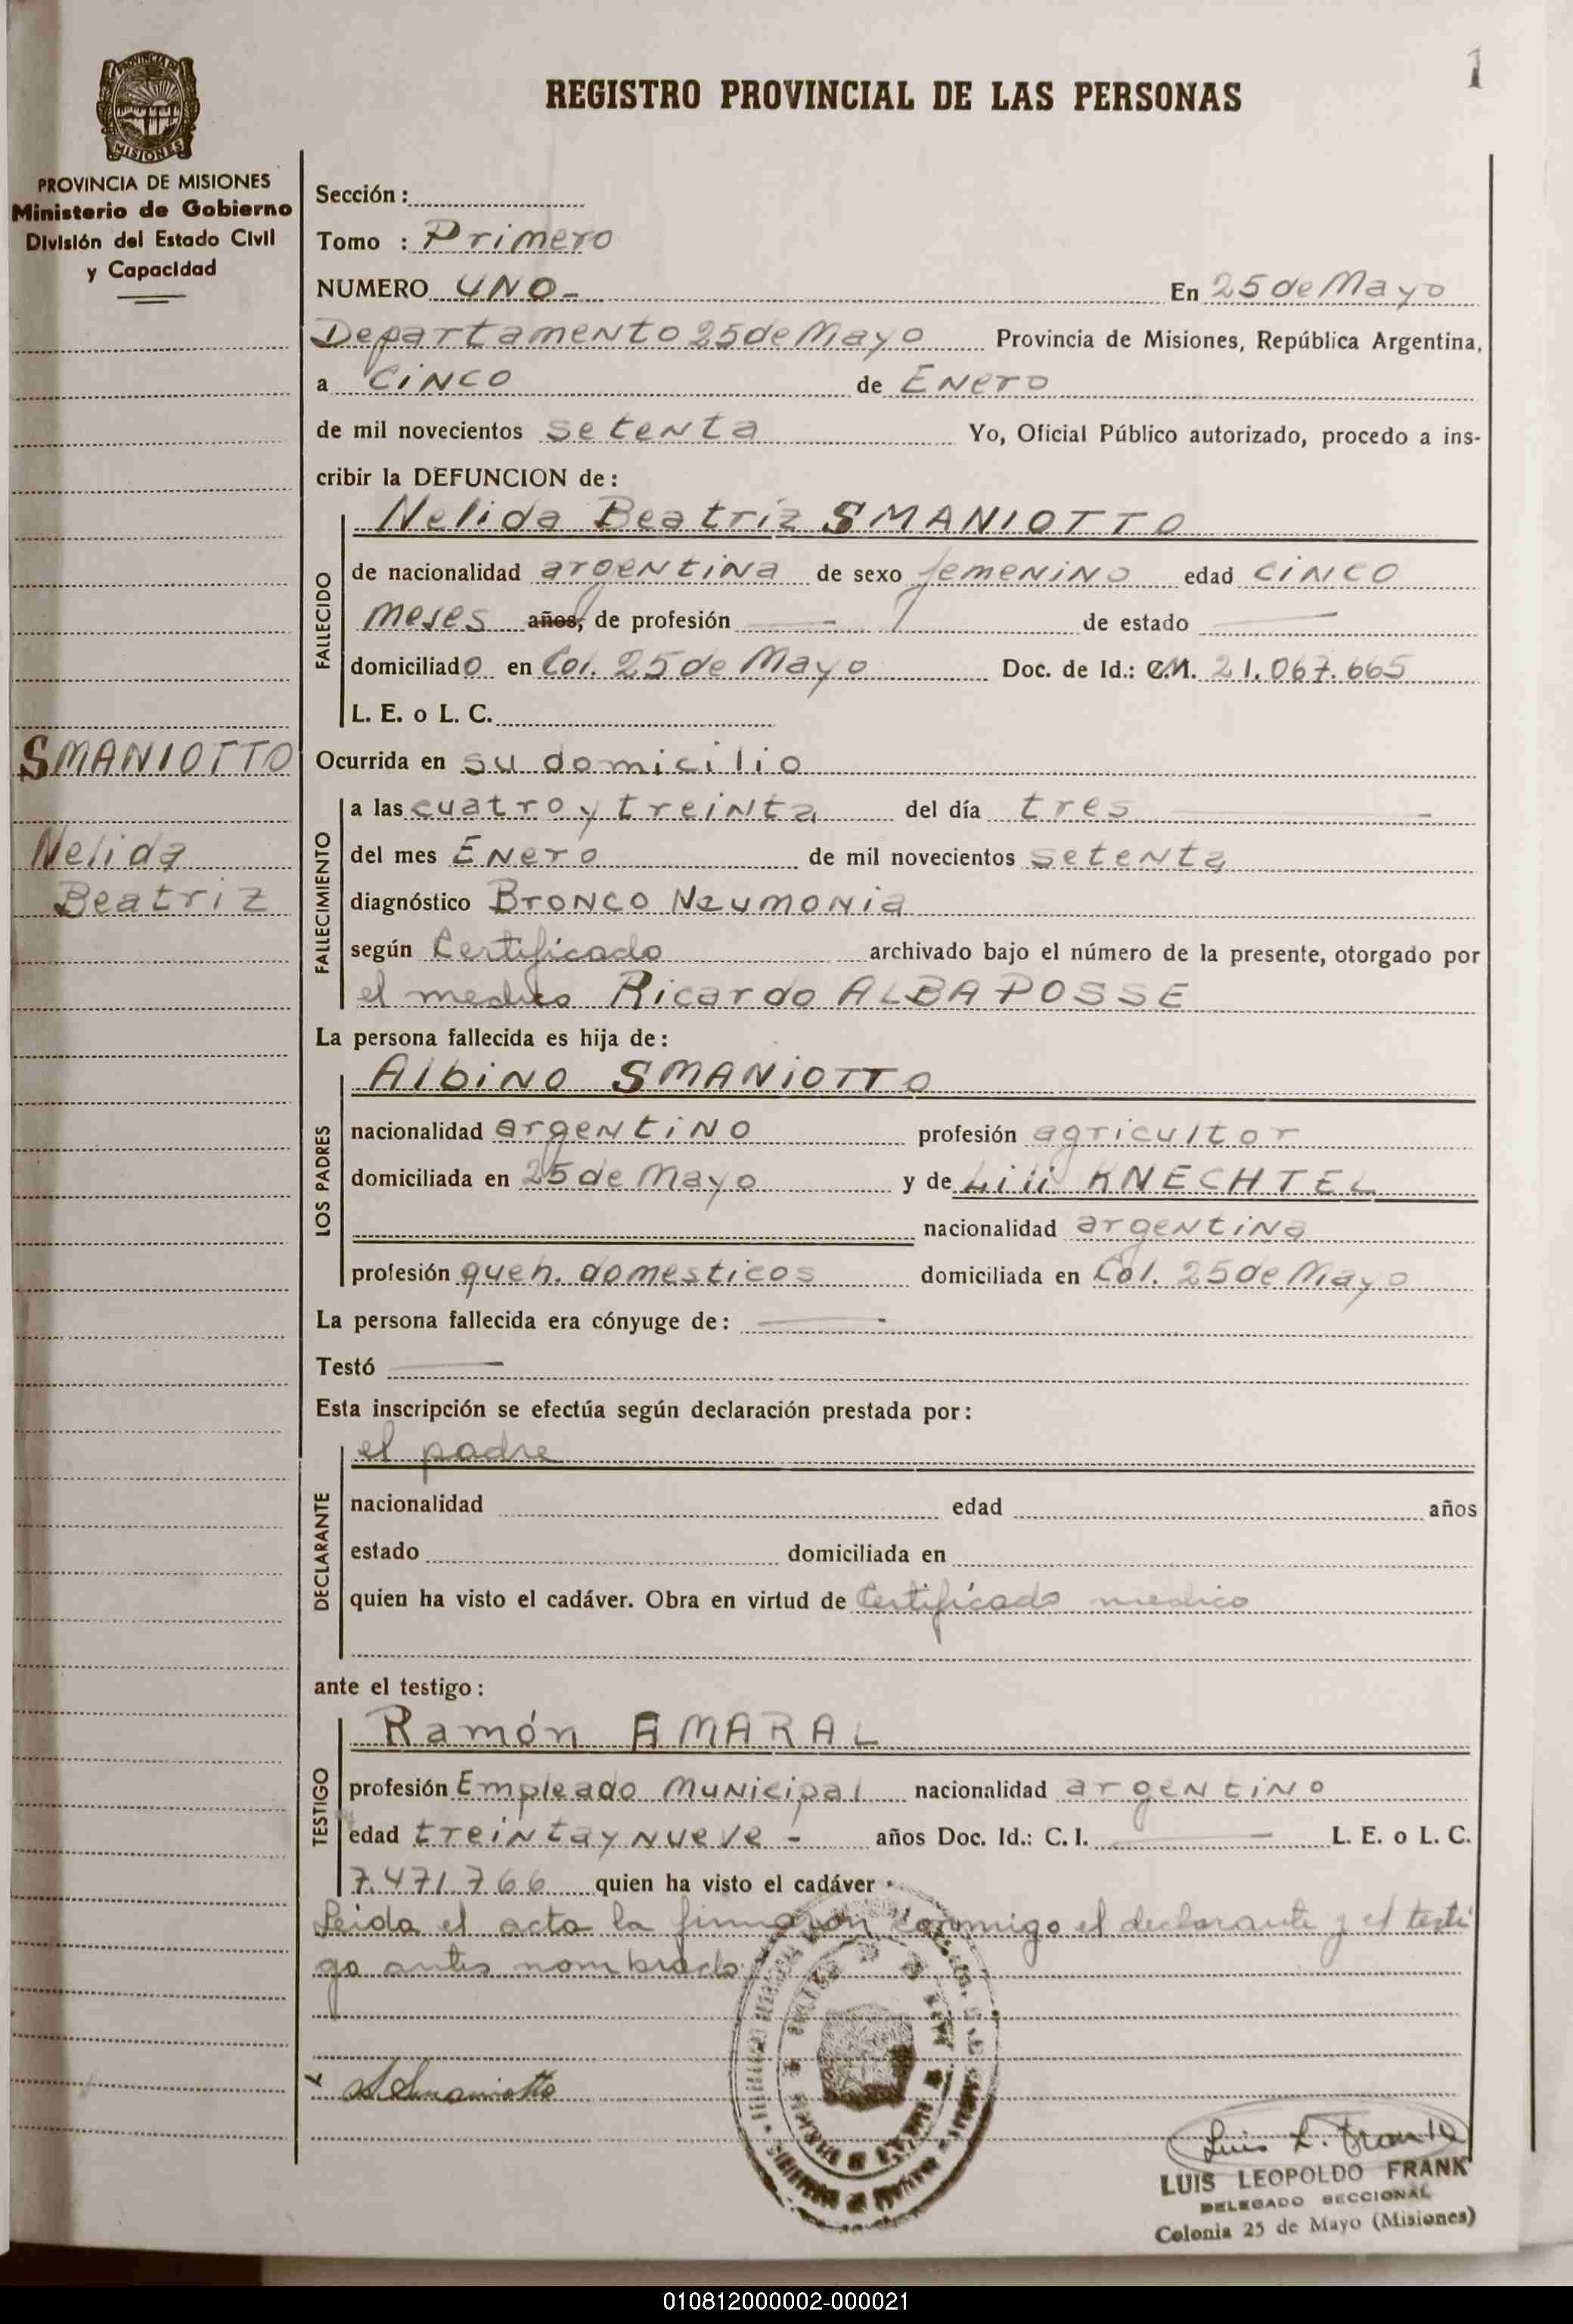 1
REGISTRO PROVINCIAL DE LAS PERSONAS
PROVINCIA DE MISIONES
MISIONES
PROVINCIA DE MISIONES
Ministerio de Gobierno
División del Estado Civil
y Capacidad
SMANIOTTO
Nelida
Beatriz
Sección :
Tomo : Primero
NUMERO UNO- En 25 de Mayo
Departamento 25 de Mayo Provincia de Misiones, República Argentina,
a CiNCO de ENero
de mil novecientos setenta Yo, Oficial Público autorizado, procedo a ins-
cribir la DEFUNCION de :
Nelida Beatriz SMANIOTTO
FALLECIDO
de nacionalidad argentina de sexo femenino edad cinco
meses años, de profesión — de estado —
domiciliado en Col. 25 de Mayo Doc. de Id.: C.M. 21.067.665
L. E. o L. C.
Ocurrida en su domicilio
FALLECIMIENTO
a las cuatro y treinta del día tres —
del mes Enero de mil novecientos setenta
diagnóstico Bronco Neumonia
según Certificado archivado bajo el número de la presente, otorgado por
el medico Ricardo ALBA POSSE
La persona fallecida es hija de :
LOS PADRES
Albino SMANIOTTO
nacionalidad argentino profesión agricultor
domiciliada en 25 de Mayo y de Lili KNECHTEL
nacionalidad argentina
profesión queh. domesticos domiciliada en Col. 25 de Mayo
La persona fallecida era cónyuge de : —
Testó —
Esta inscripción se efectúa según declaración prestada por :
DECLARANTE
el padre
nacionalidad edad años
estado domiciliada en
quien ha visto el cadáver. Obra en virtud de Certificado medico
ante el testigo :
TESTIGO
Ramón AMARAL
profesión Empleado Municipal nacionalidad argentino
edad treinta y nueve - años Doc. Id.: C. I. — L. E. o L. C.
7.471.766 quien ha visto el cadáver .
Leida el acta la firmaron conmigo el declarante y el testi
go antes nombrado
A. Smaniotto
Luis L. Frank
LUIS LEOPOLDO FRANK
DELEGADO SECCIONAL
Colonia 25 de Mayo (Misiones)
010812000002-000021